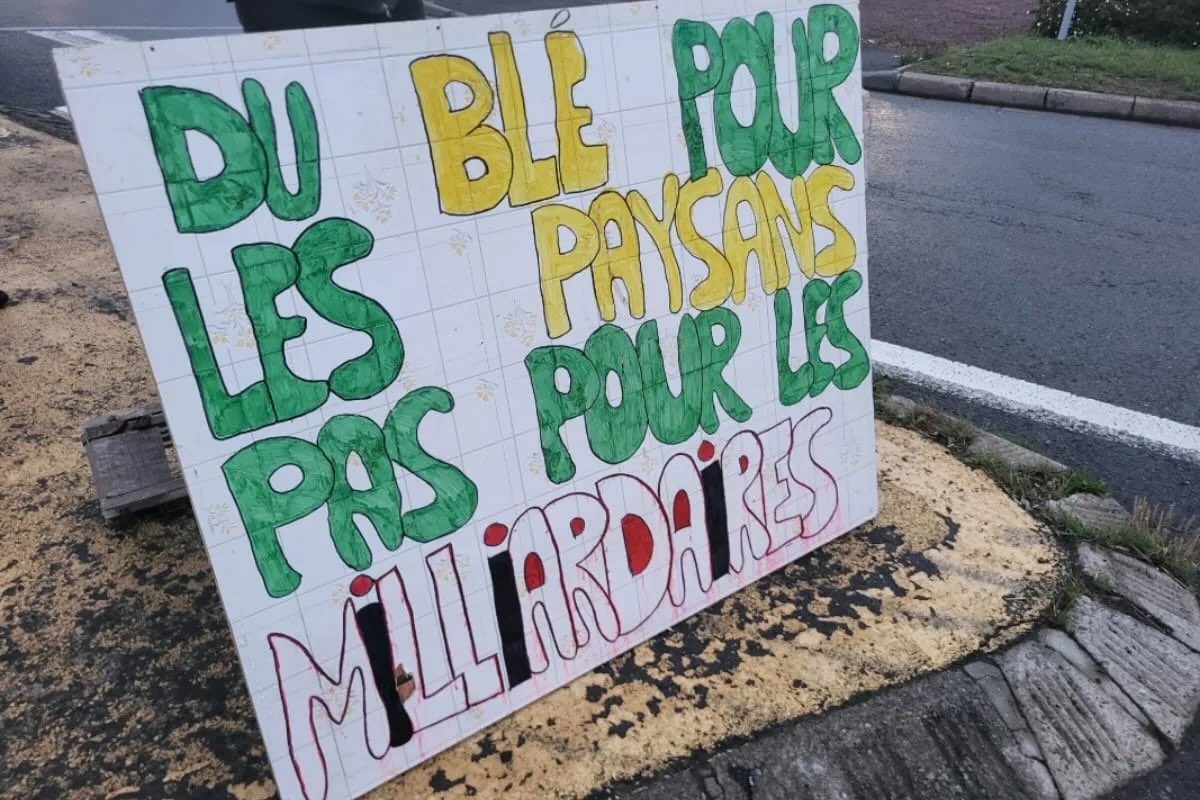 DU BLÉ POUR
LES PAYSANS
PAS POUR LES
MiLLiARDAiRES